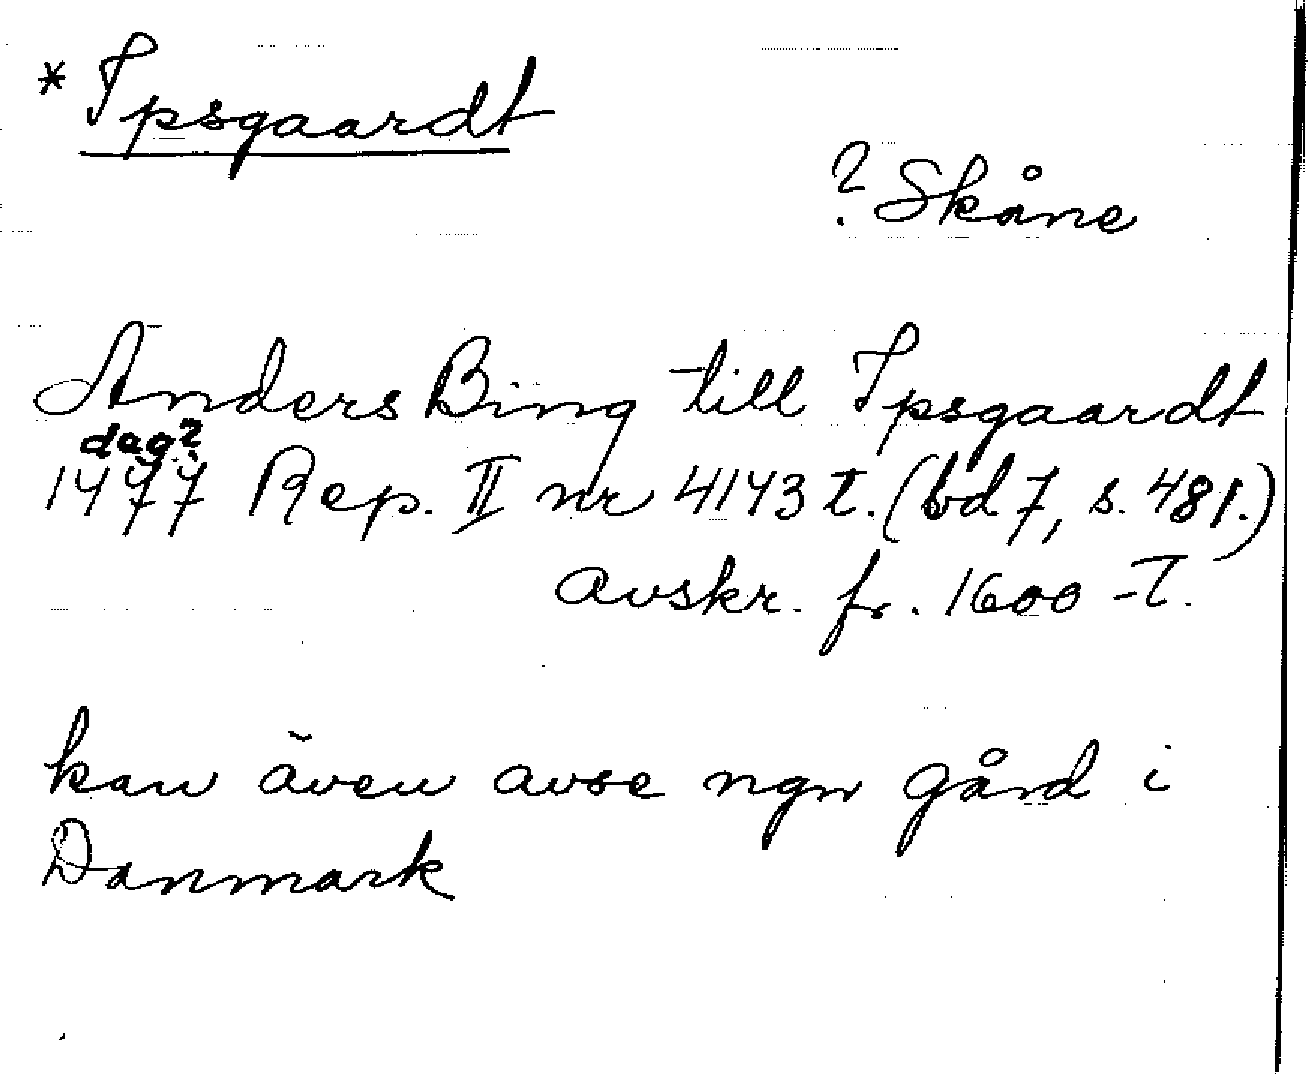 * Ipsgaardt
? Skåne
Anders Bing till Ipsgaardt
dag?
1477 Rep. II nr 4143 t. (bd 7, s. 481.)
avskr. fr. 1600-t.
kan även avse ngn gård i
Danmark